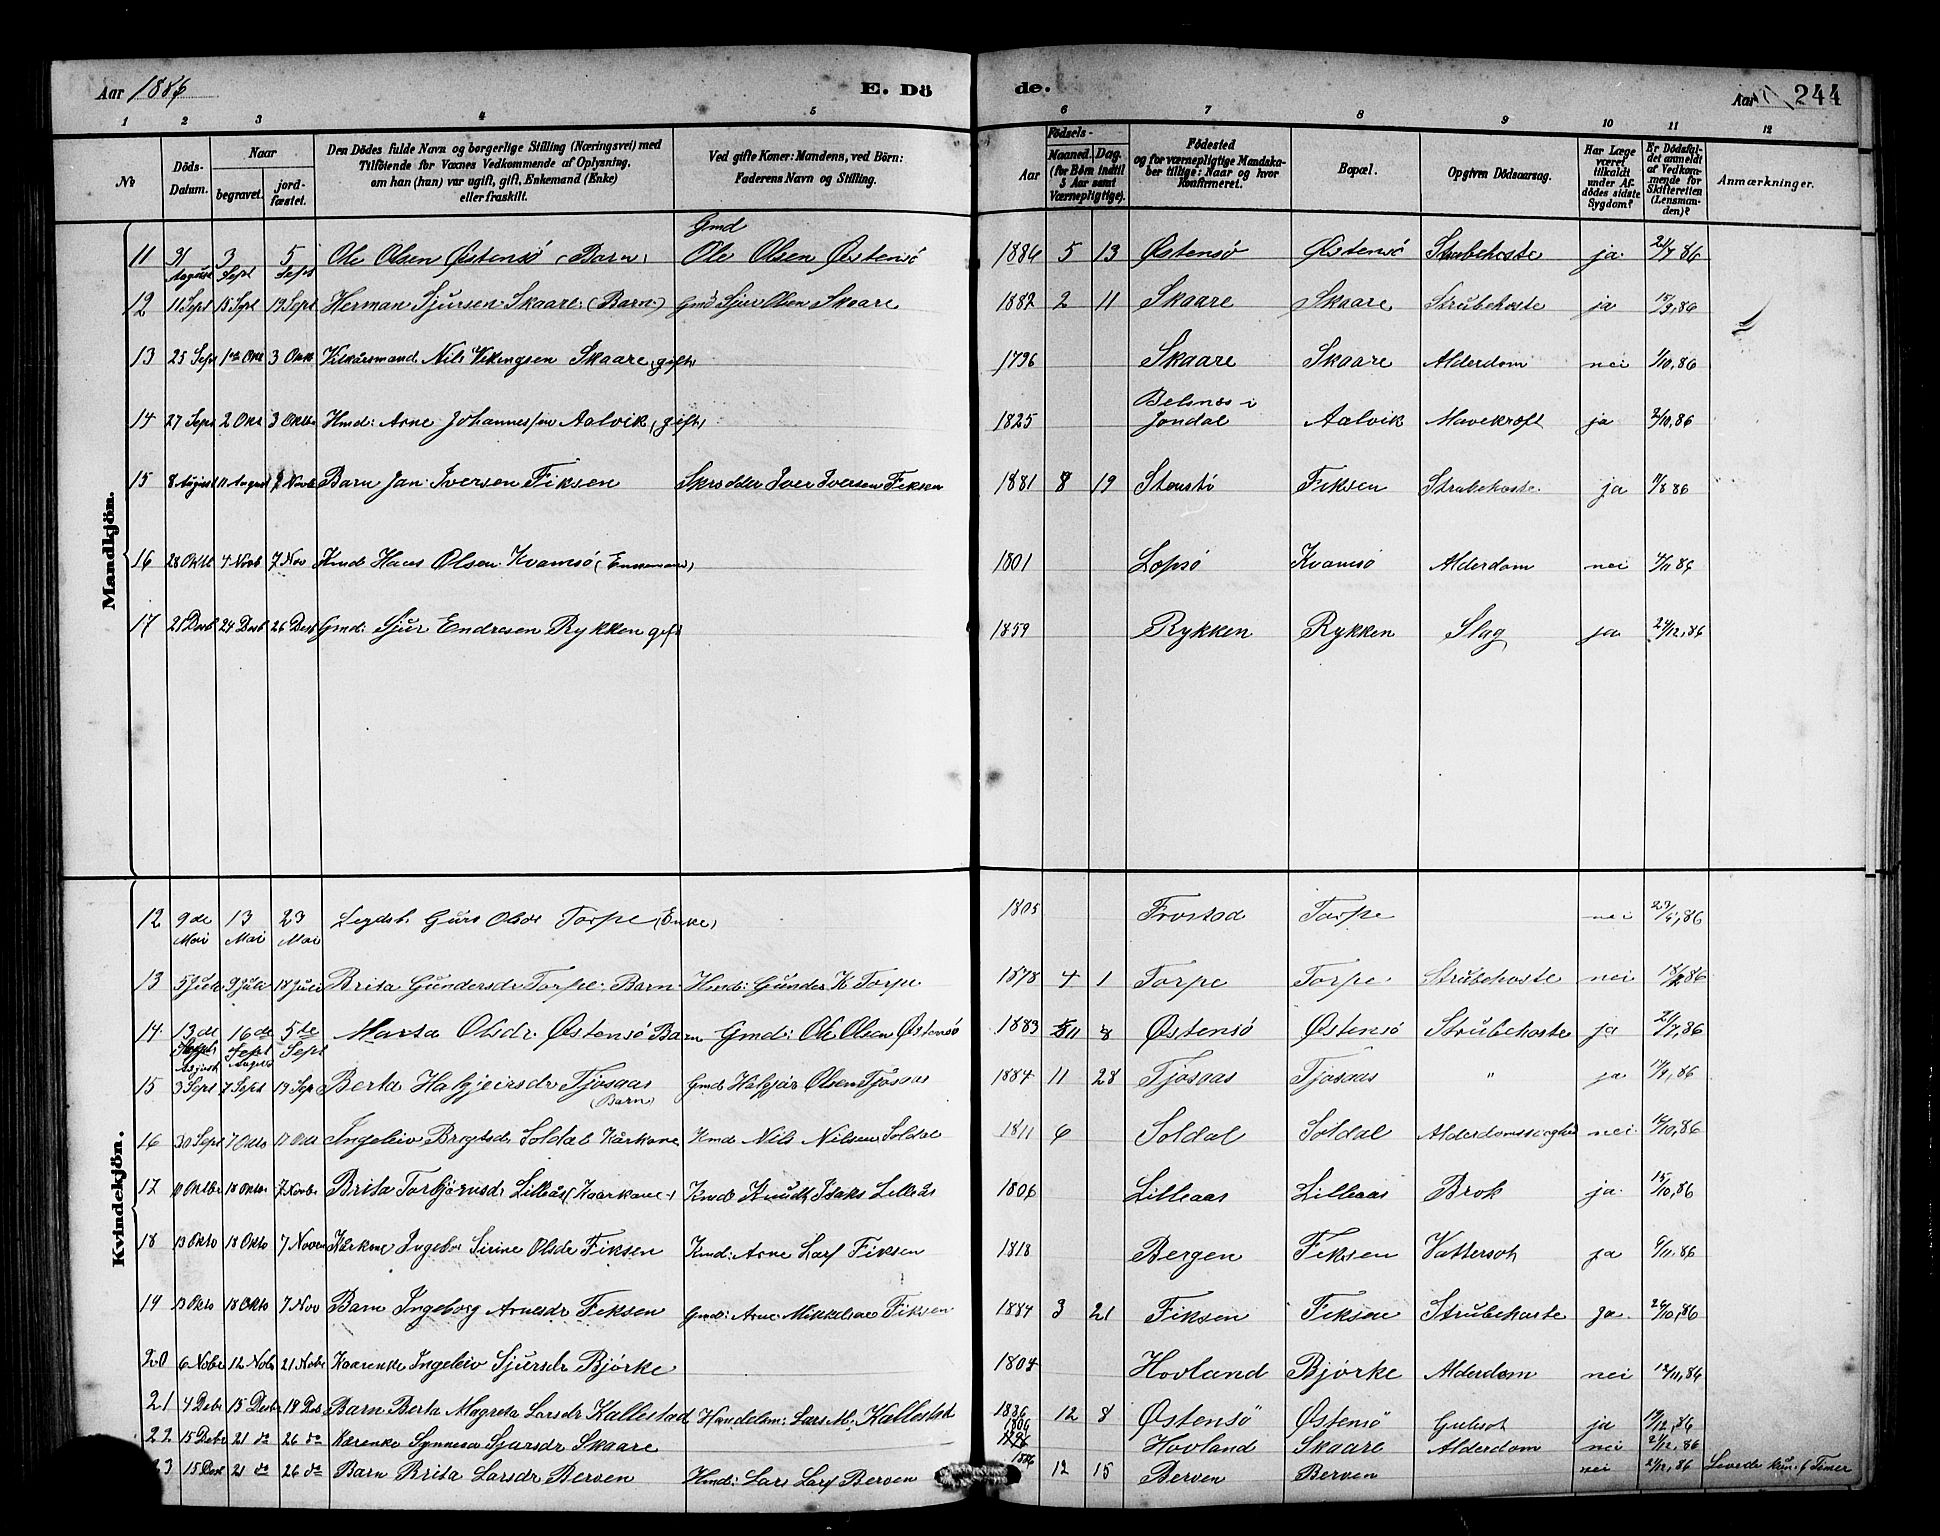 Aar 1886
E. Dö
de.
Aar
244
1 2 3 4 5 6 7 8 9 10 11 12
No
Döds-Datum.
Naar
begravet.
jord-fæstet.
Den Dödes fulde Navn og borgerlige Stilling (Næringsvei) med
Tilföiende for Voxnes Vedkommende af Oplysning,
om han (hun) var ugift, gift, Enkemand (Enke)
eller fraskilt.
Ved gifte Koner: Mandens, ved Börn:
Faderens Navn og Stilling.
Födsels-
Aar
Maaned. Dag.
(for Börn indtil
5 Aar samt
Værnepligtige).
Födested
og for værnepligtige Mandska-
ber tillige: Naar og hvor
Konfirmeret.
Bopæl.
Opgiven Dödsaarsag.
Har Læge
været
tilkaldt
under Af-
dödes sidste
Sygdom?
Er Dödsfal-
det anmeldt
af Vedkom-
mende for
Skifteretten
(Lensman-
den)?
Anmærkninger.
Mandkjön.
11 31 August 3 Sept 5 Sept Ole Olsen Østensö (Barn) Gmd Ole Olsen Østensö 1886 5 13 Østensö Østensö Strubehoste ja 21/7 86
12 11 Sept 15 Sept 19 Sept Herman Sjursen Skaare (Barn) Gmd Sjur Olsen Skaare 1882 2 11 Skaare Skaare Strubehoste ja 18/9,86
13 25 Sept 1ste Okt 3 Okt Kilkårsmand Nils Vikingsen Skaare, gift, 1796 Skaare Skaare Alderdom nei 1/10,86
14 27 Sept 2 Okt 3 Oktbr Hmd: Arne Johannessen Aalvik, gift, 1825 Belsnes i Jondal Aalvik Mavekræft ja 2/10,86
15 8 August 11 August 7 Novbr Barn Jan Iversen Fiksen Skrædder Iver Iversen Fiksen 1881 8 19 Fiksen Strubehoste ja 11/8 86
16 28 Oktb 4 Novb 7 Nov Kmd Hans Olsen Kvamsö (Enkemand) 1801 Kvamsö Alderdom nei 4/11 86
17 21 Desb 24 Desb 26 Desb Gmd: Sjur Endresen Rykken gift 1859 Rykken Rykken Slag ja 24/12,86
Kvindekjön.
12 9de Mai 13 Mai 23 Mai Legdsl. Guro Olsdr Torpe (Enke) 1805 Frostad Torpe nei 23/5,86
13 5 Juli 9 Juli 18 Juli Brita Gundersdr Torpe. Barn Hmd: Gunder K Torpe 1878 4 1 Torpe Torpe Strubehoste nei 86
14 13de August 16de August 5te Sept Marta Olsdr. Østensö Barn Gmd: Ole Olsen Østensö 1883 11 8 Østensö Østensö Strubehoste ja 21/7,86
15 3 Sept 7 Sept 19 Sept Berta Halgjeirsdr Tjosaas (Barn) Gmd Halgjär Olsen Tjosaas 1884 11 28 Tjosaas Tjosaas " ja 86
16 30 Sept 7 Okto 17 Okt Ingeleiv Brytsdr Soldal Kårkone Kmd Nils Nilsen Soldal 1811 6 Soldal Soldal nei 86
17 Oktbr 18 Oktbr 7 Novbr Brita Torbjörnsdr Lilleås (Kaarkone) Kmd Knudt Isaks Lilleås 1806 Lilleaas Lilleaas Brok ja 15/10,86
18 13 Okto 18 Okto 7 Noven Kårkone Ingebor Sirine Olsdr Fiksen Kmd: Arne Lars Fiksen 1818 Bergen Fiksen Vattersot ja 86
19 13 Okto 18 Okto 7 Nov Barn Ingeborg Arnesdr Fiksen Gmd: Arne Mikkelsen Fiksen 1884 3 21 Fiksen Fiksen Strubehoste ja 86
20 6 Nobr 12 Nobr 21 Nobr Kaarenke Ingeleiv Sjursdr Björke 1804 Hovland Björke Alderdom nei 12/11,86
21 4 Debr 15 Desbr 18 Des Barn Berta Magreta Larsdr Kallestad Handelsm: Lars M. Kallestad 1886 12 8 Østensö Østensö Gulsot ja 86
22 15 Debr 21 do 26 do Kårenke Synneva Sjursdr Skaare 1796 Hovland Skaare Alderdom nei 21/12,86
23 15 Desb 21 do 26 do Barn Brita Larsdr Berven Hmd: Lars Lars Berven 1886 12 15 Berven Berven nei 21/12,86 Levede kun Timer